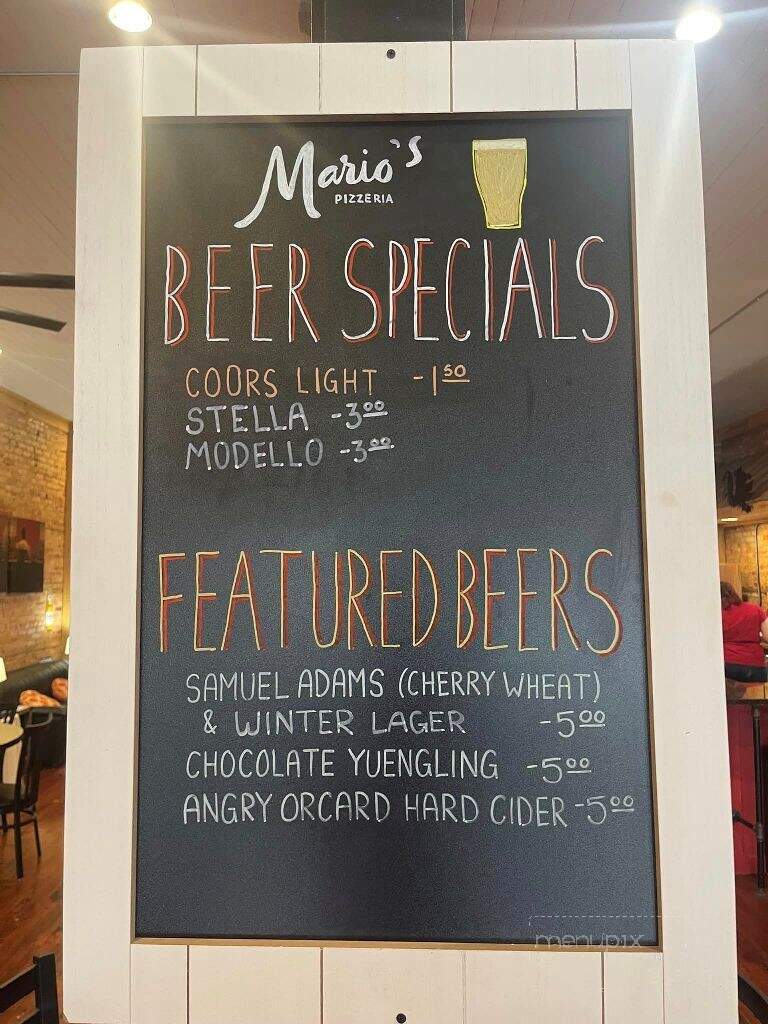 Mario's
PIZZERIA
BEER SPECIALS
COORS LIGHT -1 50
STELLA -3 00
MODELLO -3 00
FEATURED BEERS
SAMUEL ADAMS (CHERRY WHEAT)
& WINTER LAGER -5 00
CHOCOLATE YUENGLING -5 00
ANGRY ORCARD HARD CIDER -5 00
menupix